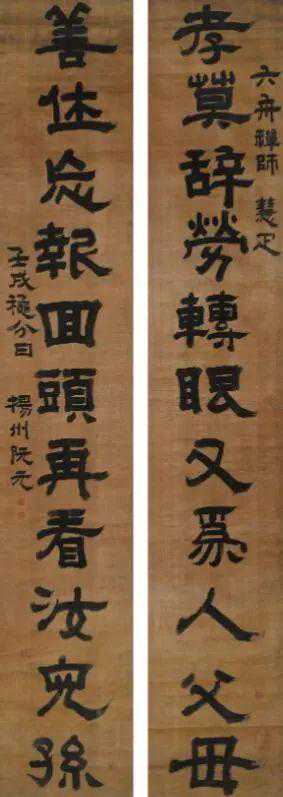 六舟禪師 慧定
孝莫辞勞轉眼又爲人父母
善休忘報回頭再看汝兒孫
壬戌秋分日 揚州阮元